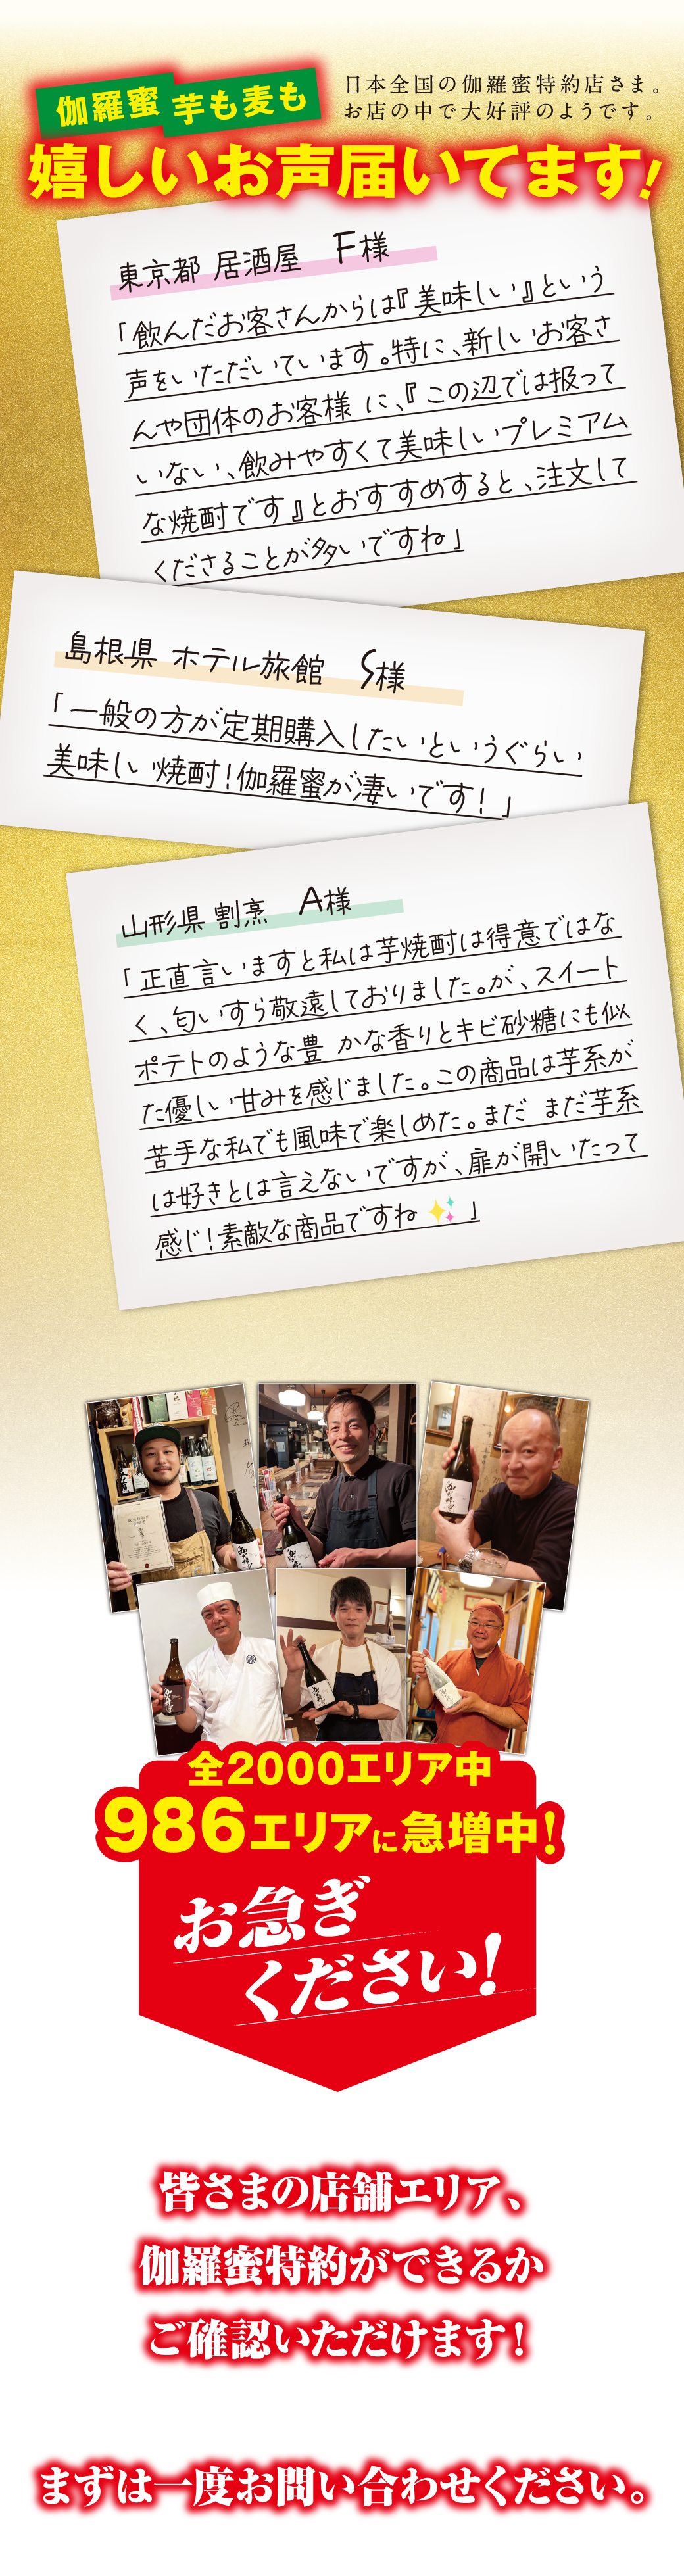 伽羅蜜 芋も麦も
日本全国の伽羅蜜特約店さま。
お店の中で大好評のようです。
嬉しいお声届いてます!
東京都 居酒屋 F様
「飲んだお客さんからは『美味しい』という
声をいただいています。特に、新しいお客さ
んや団体のお客様 に、『この辺では扱って
いない、飲みやすくて美味しいプレミアム
な焼酎です』とおすすめすると、注文して
くださることが多いですね」
島根県 ホテル旅館 S様
「一般の方が定期購入したいというぐらい
美味しい焼酎!伽羅蜜が凄いです!」
山形県 割烹 A様
「正直言いますと私は芋焼酎は得意ではな
く、匂いすら敬遠しておりました。が、スイート
ポテトのような豊 かな香りとキビ砂糖にも似
た優しい甘みを感じました。この商品は芋系が
苦手な私でも風味で楽しめた。まだ まだ芋系
は好きとは言えないですが、扉が開いたって
感じ!素敵な商品ですね✨」
全2000エリア中
986エリアに急増中!
お急ぎ
ください!
皆さまの店舗エリア、
伽羅蜜特約ができるか
ご確認いただけます!
まずは一度お問い合わせください。